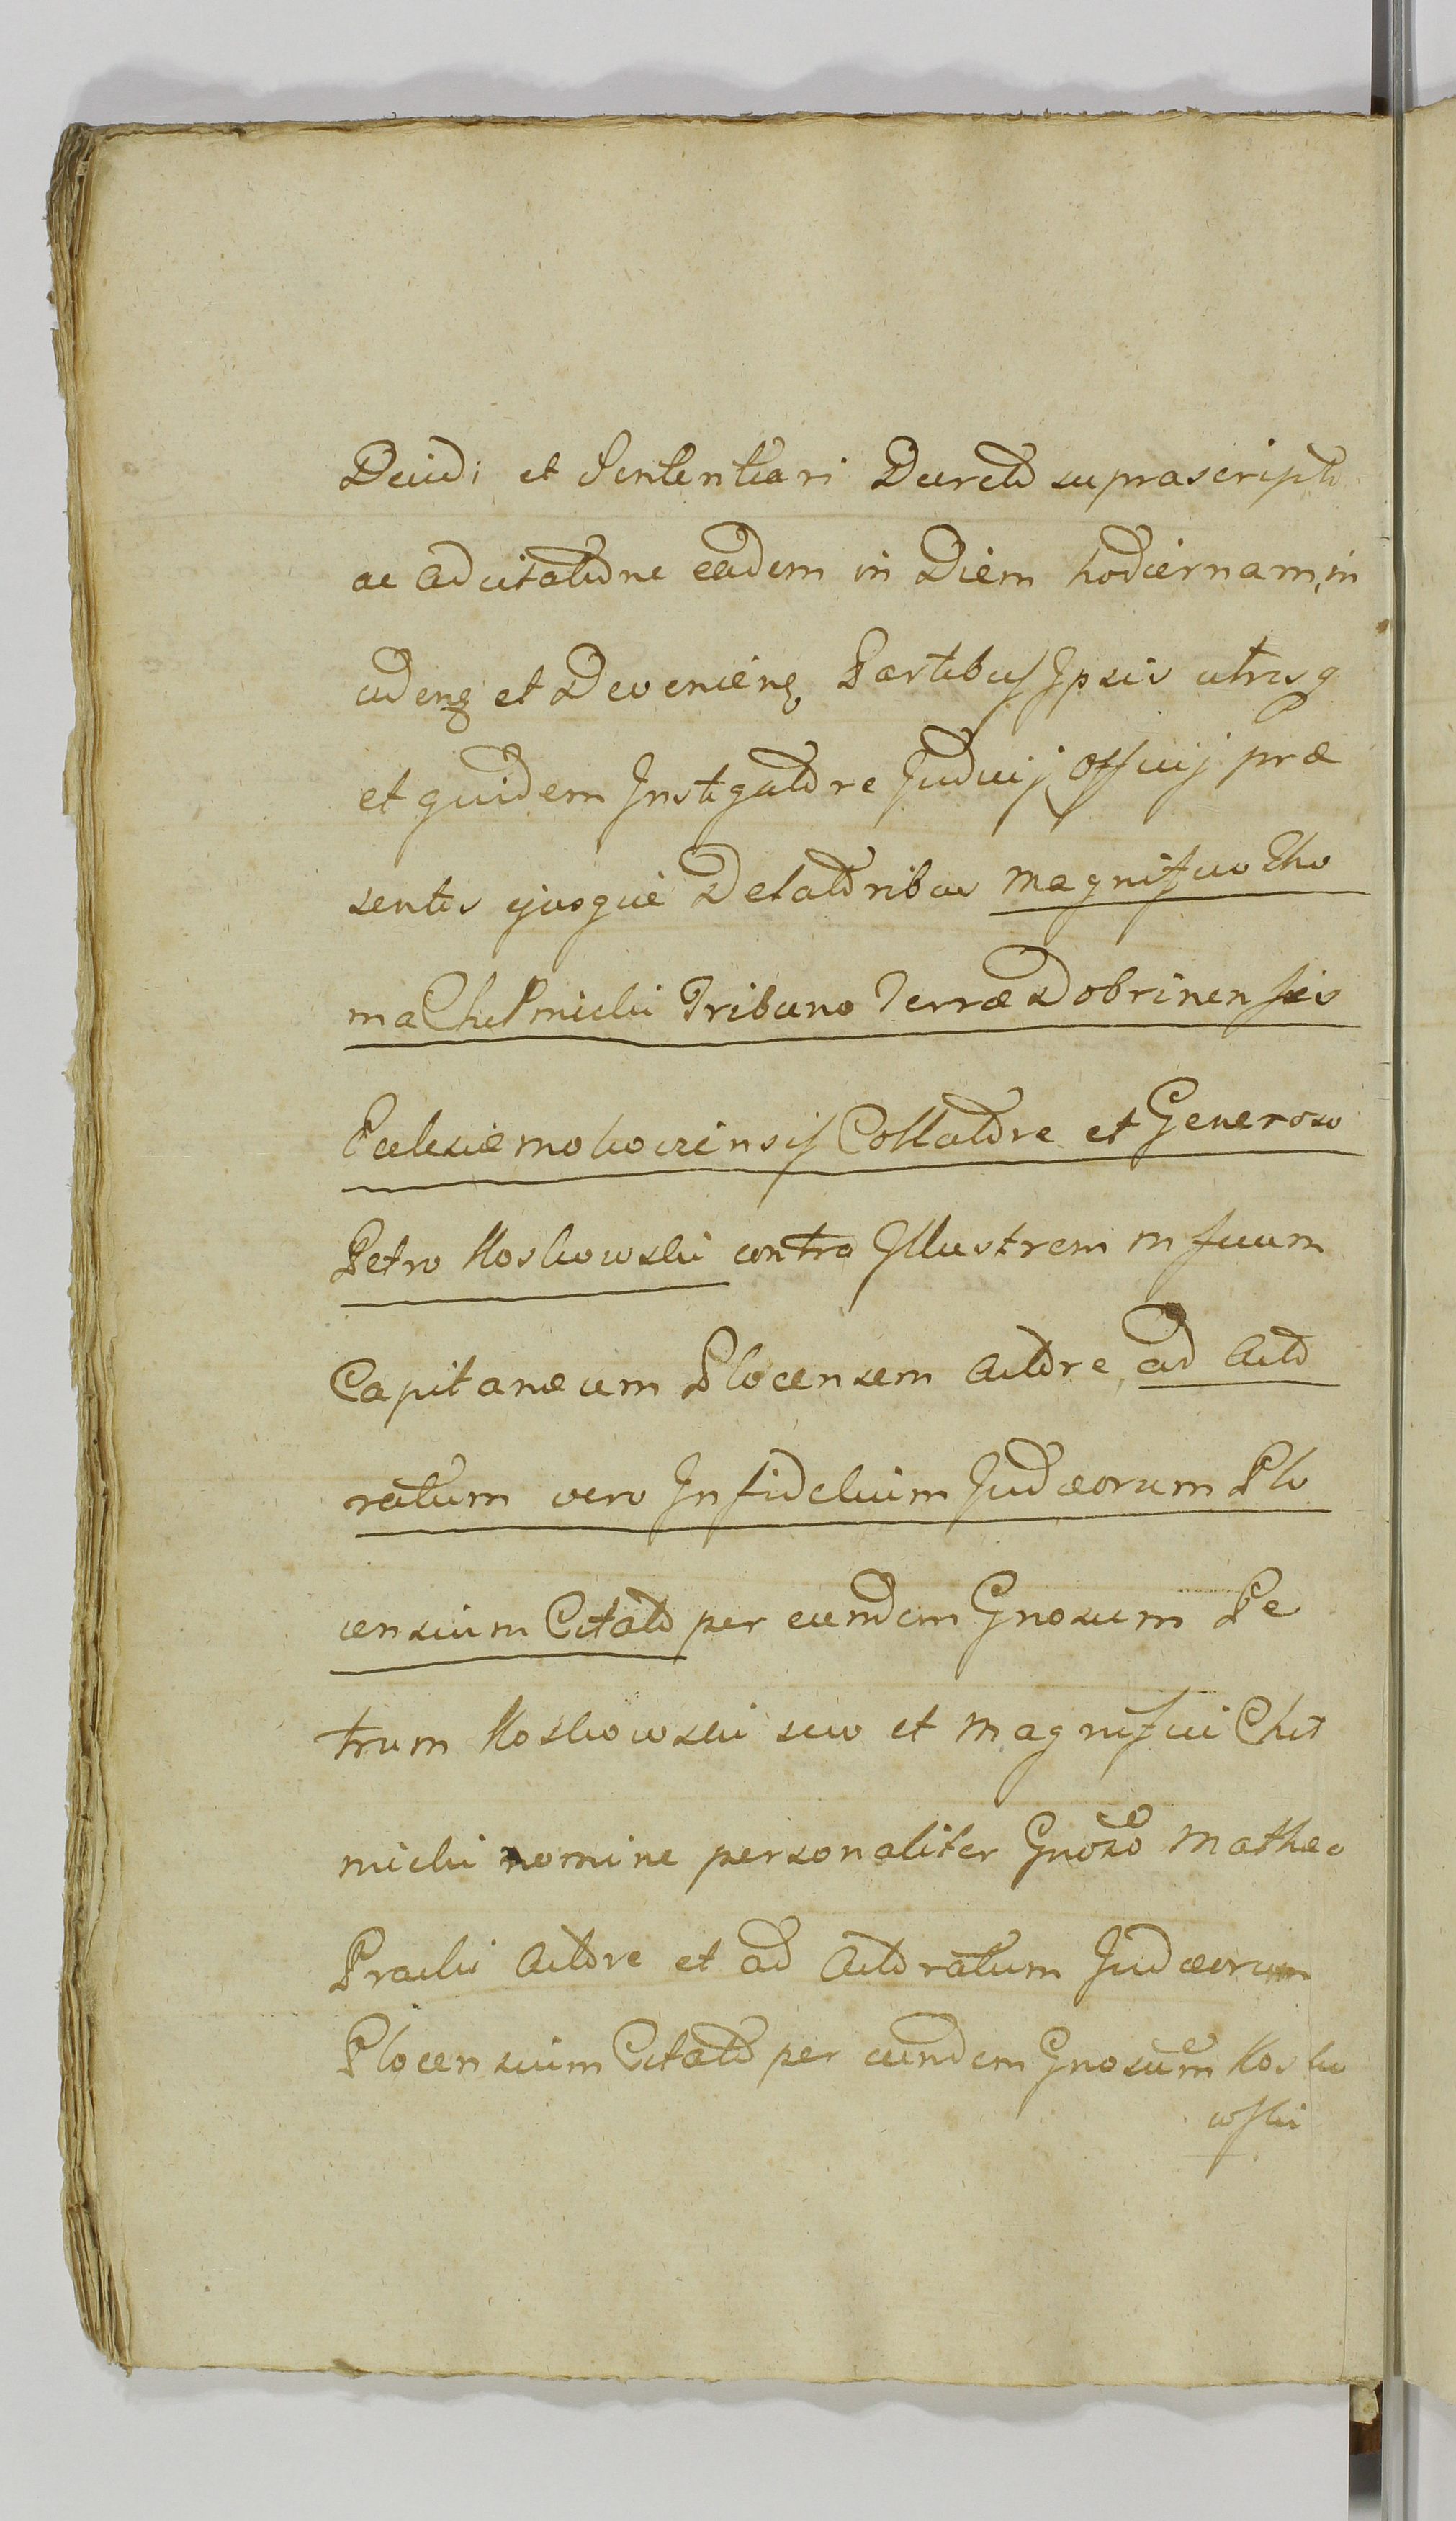 Decidi et Sententiari Decreto suprascripto
ac adcitatione eadem in Diem hodiernam, in
cidenz et Devenienz Partibus Ipsis utrisq
et quidem Instigatore Judicij Officij præ
sentis ejusque Delatoribus Magnifico Tho
ma Chełmicki Tribuno Terræ Dobrinensis
Ecclesiæ Mokowiensis Collatore et Generoso
Petro Koskowski contra Illustrem Mficum
Capitanæum Plocensem Actore, ad Acto
ratum vero Infidelium Judæorum Plo
censium Citato per eundem Gnosum Pe
trum Koskowski suo et Magnifici Cheł
micki nomine personaliter Gnoso Matheo
Pracki Actore et ad Actoratum Judæorum
Plocensium Citato per eundem Gnosum Kosko
wski